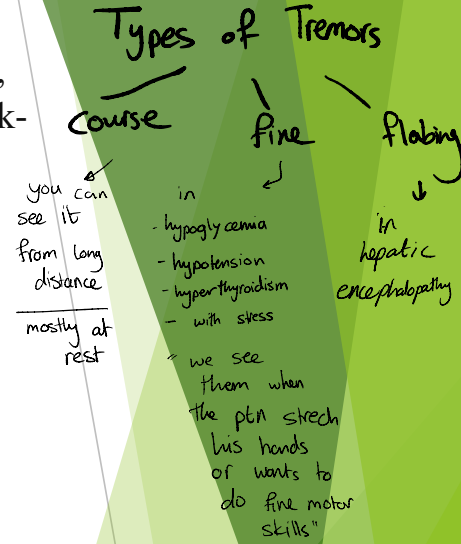 Types of Tremors
,
k-
course
fine
flabing
you can
see it
from long
distance
mostly at
rest
in
- hypoglycemia
- hypotension
- hyperthyroidism
- with stress
" we see
them when
the ptn strech
his hands
or wants to
do fine motor
skills"
in
hepatic
encephalopathy